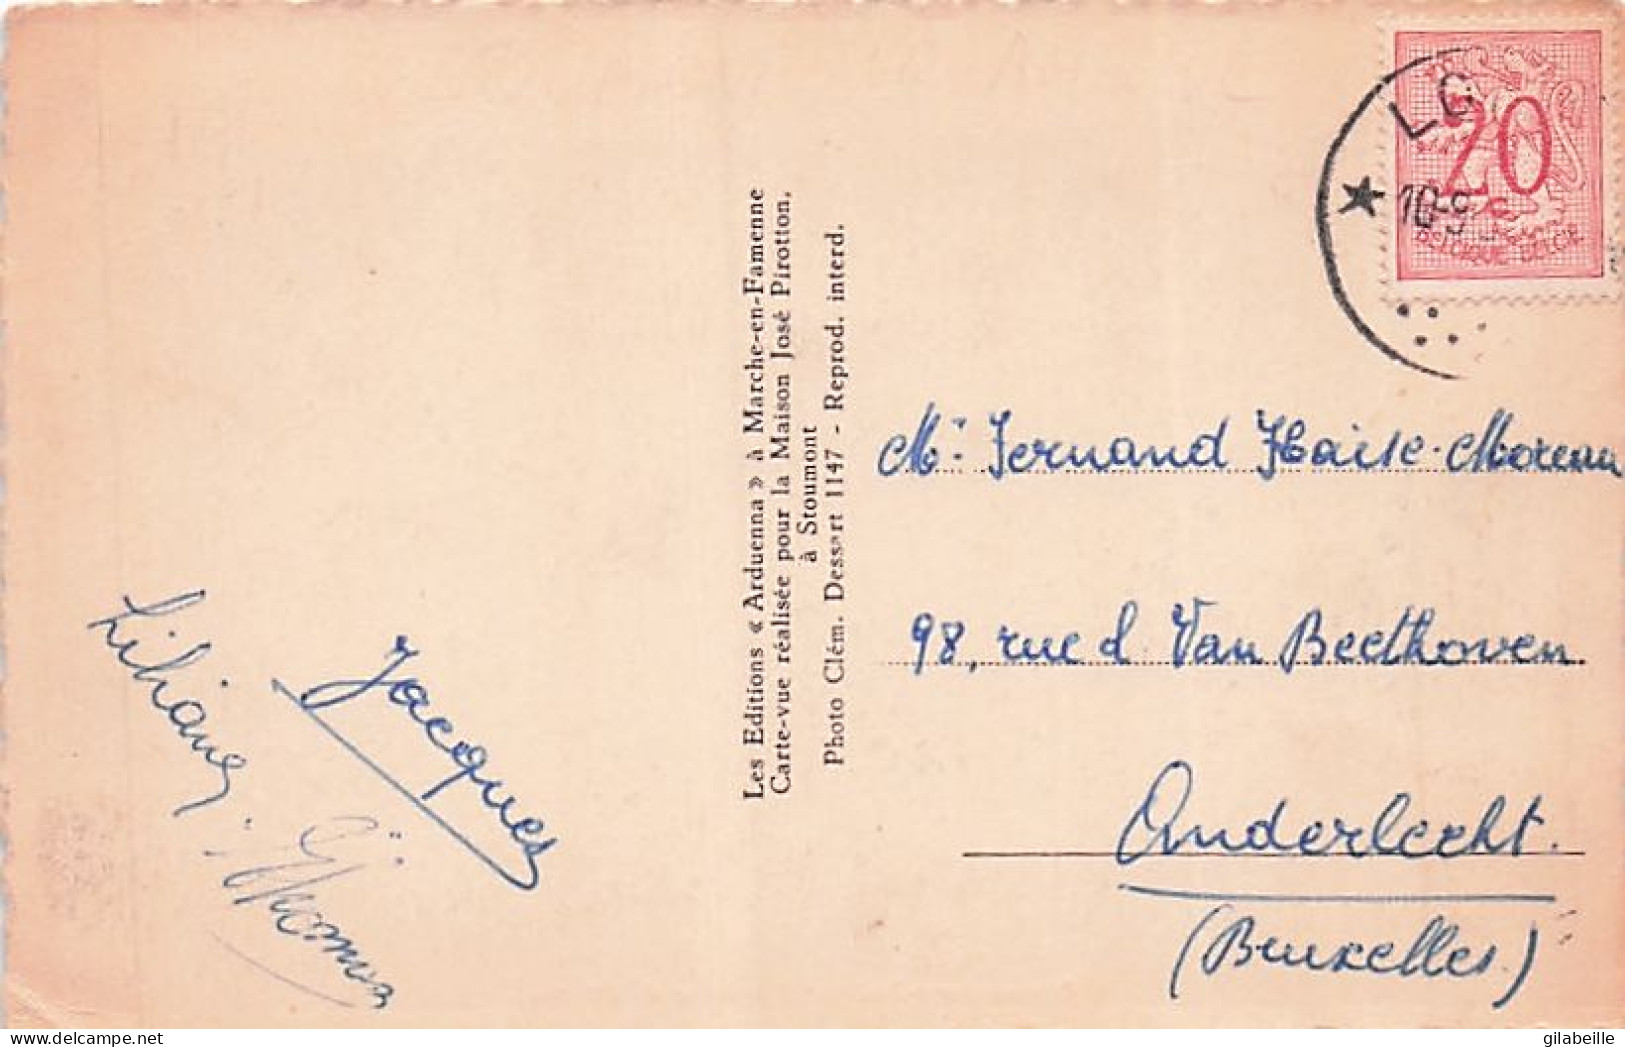 LG
20
10-9
BELGIQUE BELGIE
Les Editions « Arduenna » à Marche-en-Famenne
Carte-vue réalisée pour la Maison José Pirotton,
à Stoumont
Photo Clém. Dessart 1147 - Reprod. interd.
Mr Fernand Haise-Moreau
98, rue d Van Beethoven
Anderlecht.
(Bruxelles)
Jacques
Liliane
gilabeille